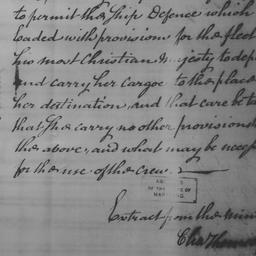 to permit the Ship Defence which
loaded with provisions for the fleet
his most Christian Majesty to dep
and carry her cargoe to the place
her destination, and that care be ta
that she carry no other provisions
the above, and what may be nece
for the use of the crew.
Extract from the min